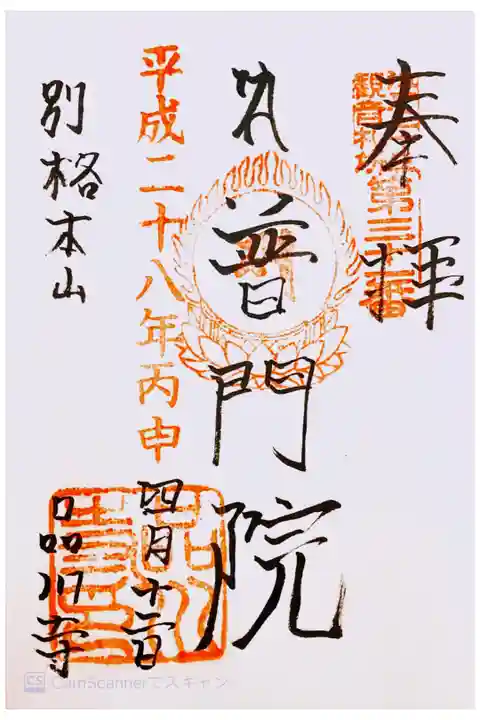 奉拝
観音札所
第三十一番
普門院
平成二十八年丙申
四月
別格本山
品川寺
CS CamScannerでスキャン